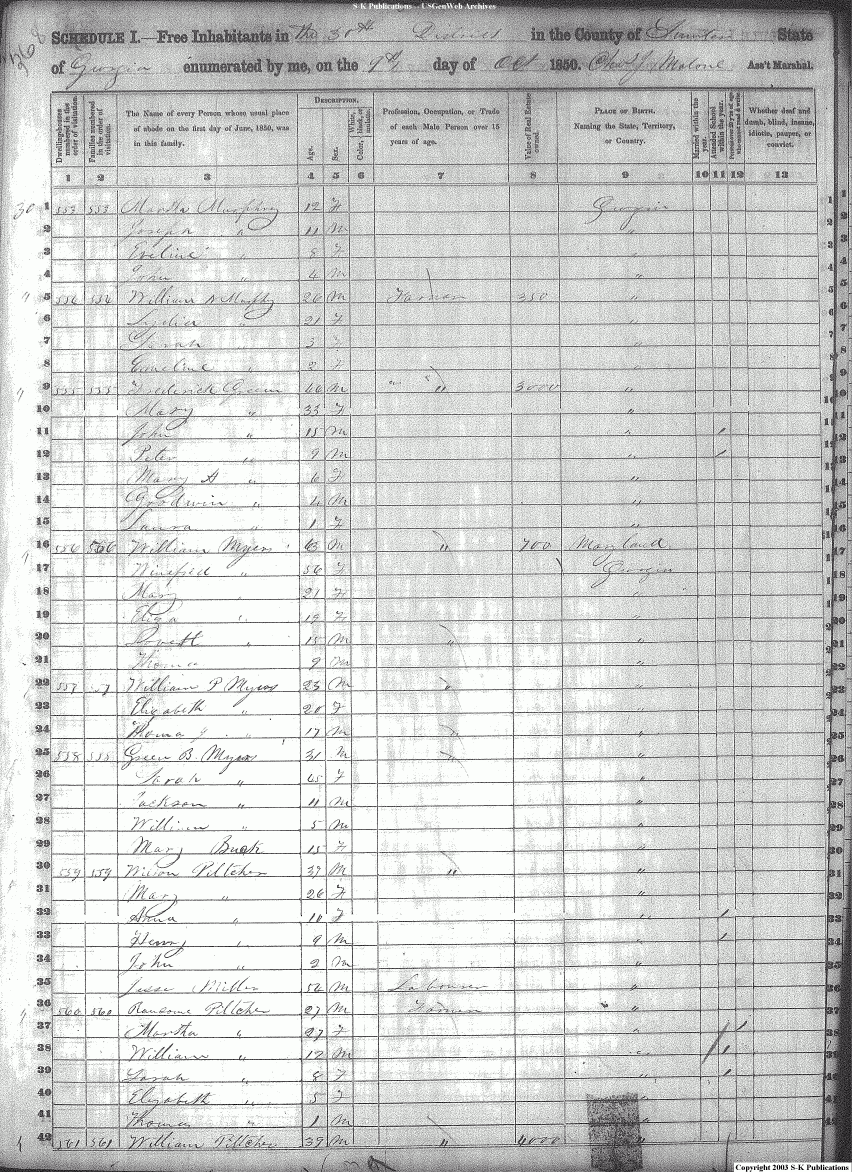 S-K Publications - USGenWeb Archives
SCHEDULE I.—Free Inhabitants in the 30th District in the County of State
of Georgia enumerated by me, on the 9th day of Oct 1850. Malone Ass't Marshal.
Dwelling-houses numbered in the order of visitation.
Families numbered in the order of visitation.
The Name of every Person whose usual place of abode on the first day of June, 1850, was in this family.
DESCRIPTION.
Age.
Sex.
Color, White, black, or mulatto.
Profession, Occupation, or Trade of each Male Person over 15 years of age.
Value of Real Estate owned.
PLACE OF BIRTH. Naming the State, Territory, or Country.
Married within the year.
Attended School within the year.
Whether deaf and dumb, blind, insane, idiotic, pauper, or convict.
1 2 3 4 5 6 7 8 9 10 11 12 13
1 553 553 Martha Murphy 12 F Georgia
2 Joseph " 11 M "
3 Eveline " 8 F "
4 John " 4 M "
5 554 554 William Murphy 26 M Farmer 350 "
6 Lydia " 21 F "
7 Sarah 3 F "
8 Emeline " 2 F "
9 555 555 Frederick Green 46 M " 3000 "
10 Mary " 33 F "
11 John " 15 M "
12 Peter " 9 M "
13 Mary A " 6 F "
14 Goodwin " 4 M "
15 Laura " 1 F "
16 556 556 William Myers 63 M " 700 Maryland
17 Winefred " 56 F Georgia
18 Mary 21 F "
19 Eliza " 19 F "
20 Lovett " 15 M " "
21 Thomas 9 M "
22 557 William P Myers 23 M " "
23 Elizabeth " 20 F "
24 Thomas J " 17 M " "
25 558 Green B. Myers 31 M " "
26 Sarah " 45 F "
27 Jackson " 11 M "
28 William " 5 M "
29 Mary Buck 15 F "
30 559 559 Wilson Piltcher 37 M " "
31 Mary " 26 F "
32 Anna " 10 F "
33 Henry " 9 M "
34 John " 2 M "
35 Jesse Miller 52 M Labourer "
36 560 560 Ransome Piltcher 27 M Farmer "
37 Martha " 27 F "
38 William " 12 M "
39 Sarah " 8 F "
40 Elizabeth " 5 F "
41 Thomas " 1 M "
42 561 561 William Piltcher 39 M " 4000 "
Copyright 2003 S-K Publications